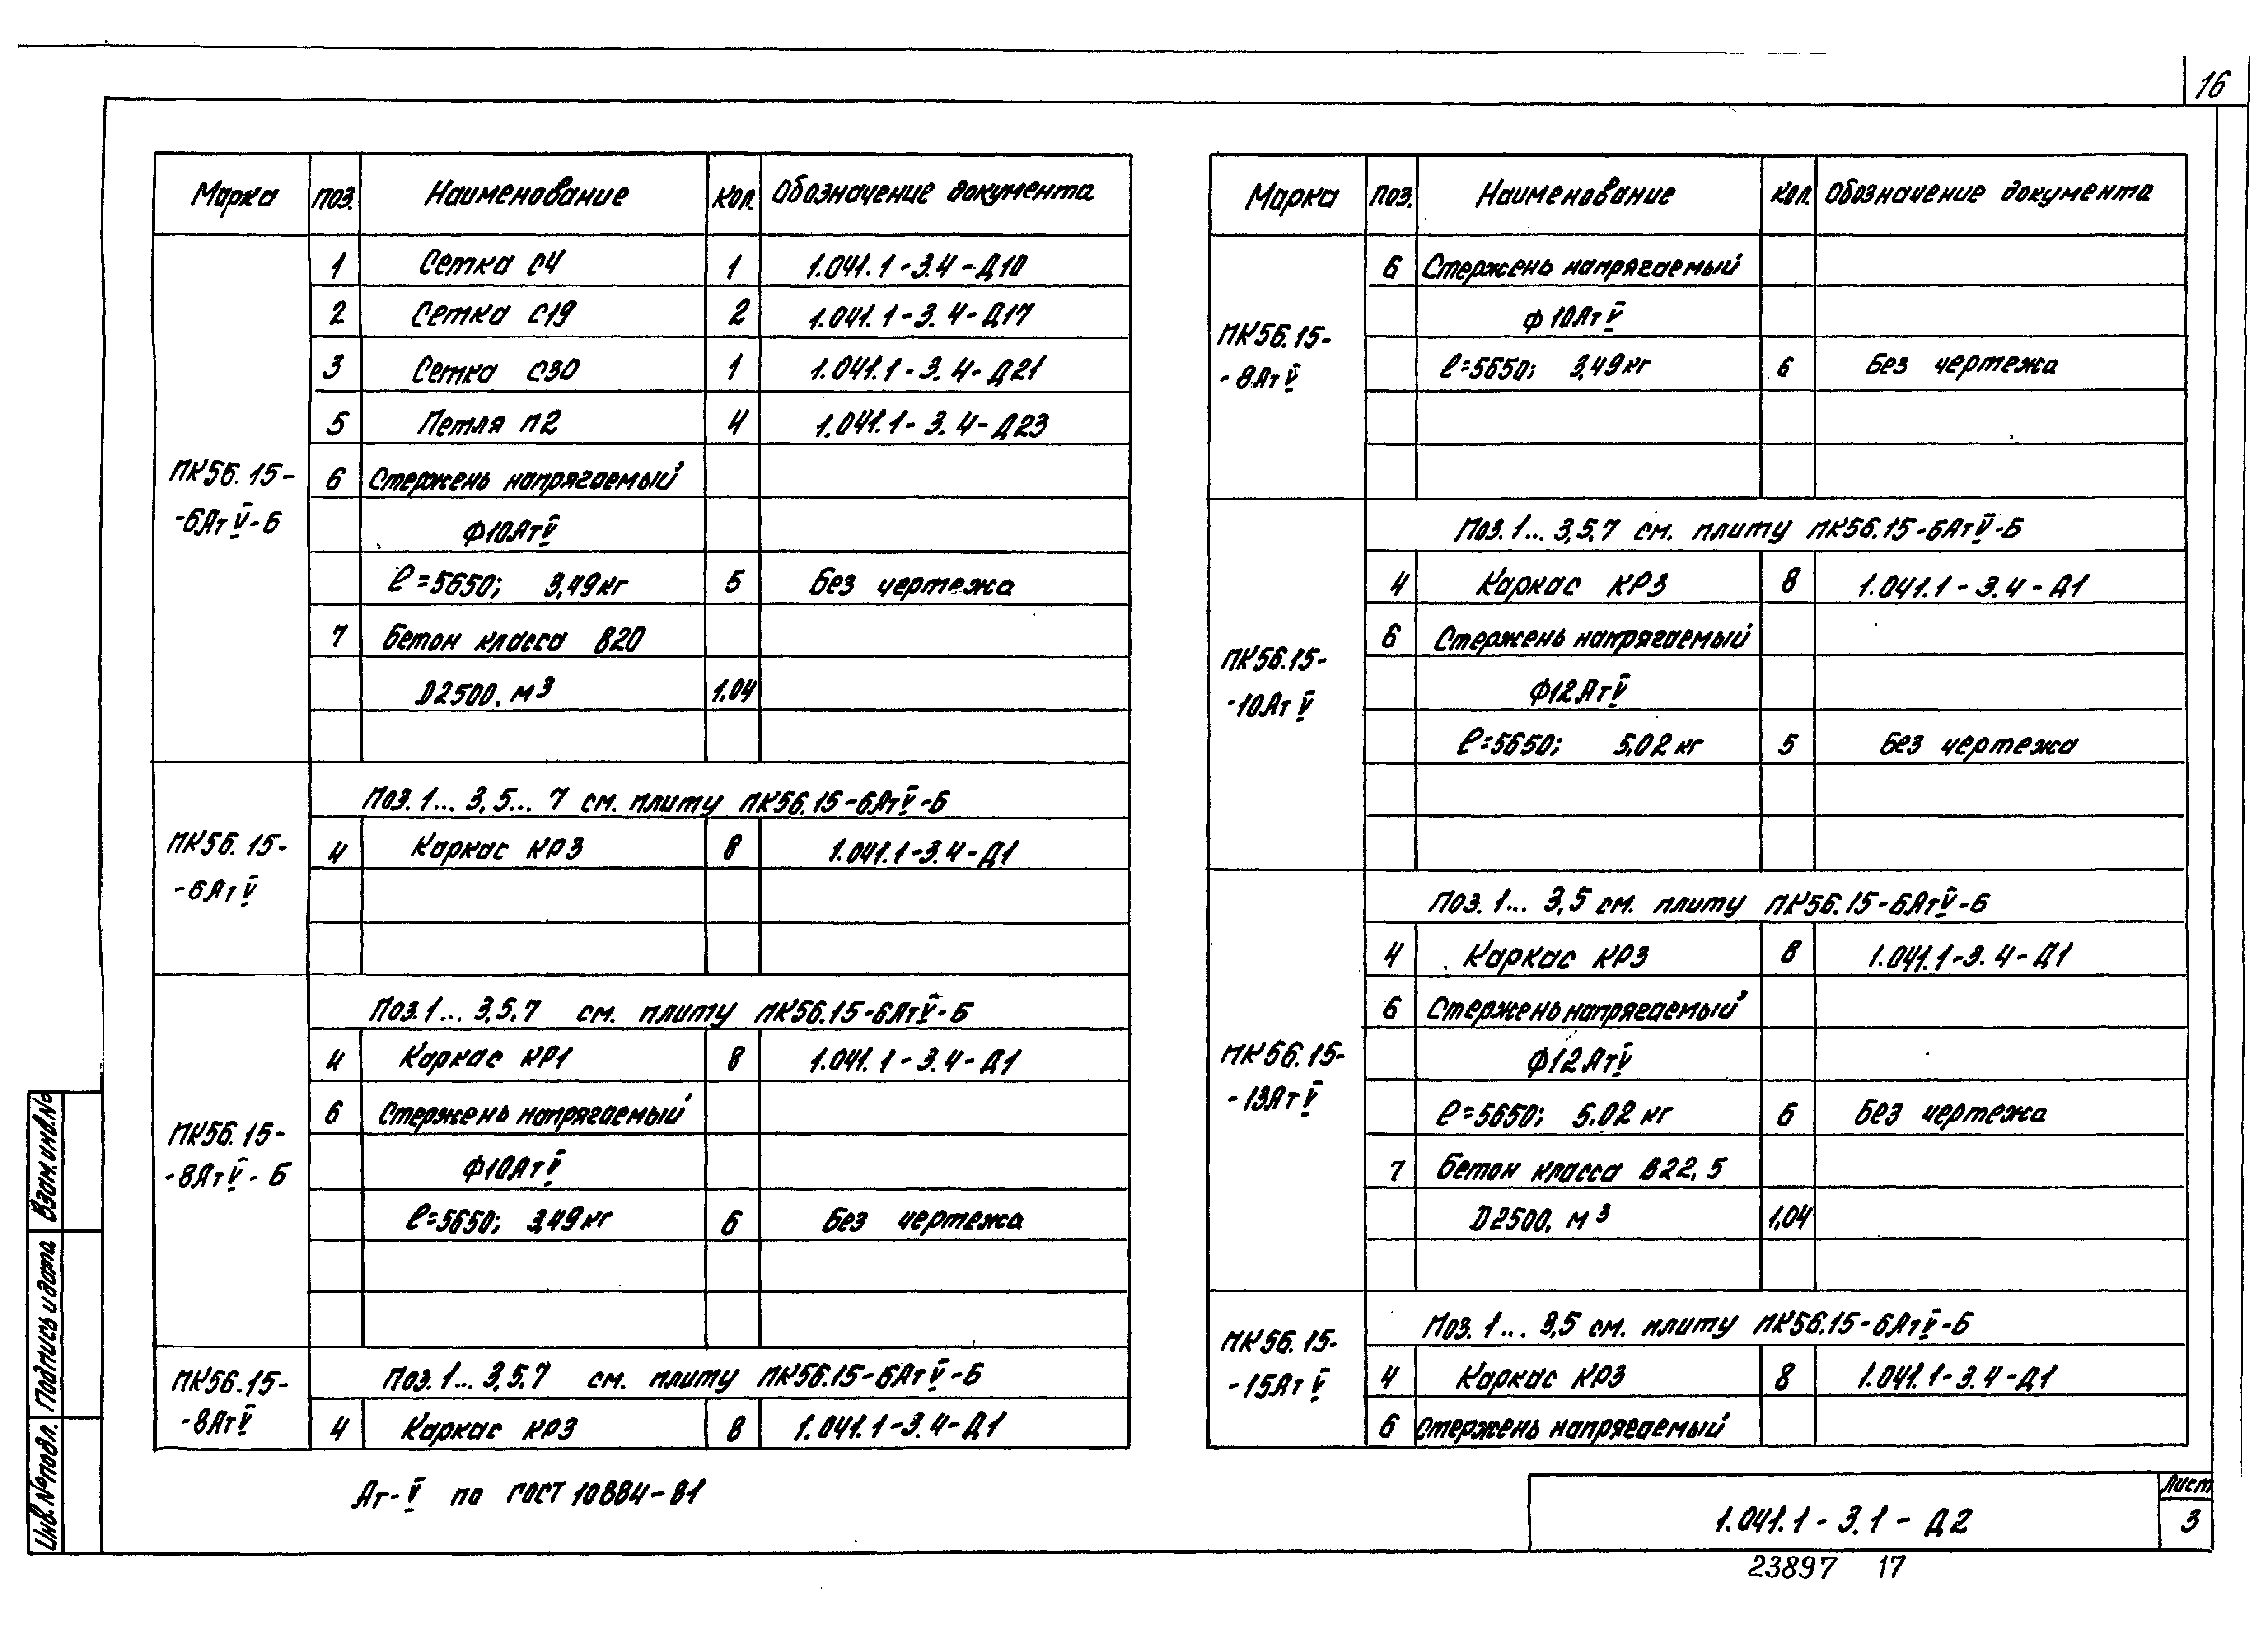 16
Марка поз. Наименование кол. Обозначение документа
1 Сетка С4 1 1.041.1-3.4-Д10
2 Сетка С19 2 1.041.1-3.4-Д17
3 Сетка С30 1 1.041.1-3.4-Д21
5 Петля П2 4 1.041.1-3.4-Д23
ПК56.15-
-6АтV-Б
6 Стержень напрягаемый
Ф10АтV
ℓ=5650; 3,49кг 5 Без чертежа
7 Бетон класса В20
D2500, м³ 1.04
ПК56.15-
-6АтV
Поз. 1... 3, 5... 7 см. плиту ПК56.15-6АтV-Б
4 Каркас КР3 8 1.041.1-3.4-Д1
ПК56.15-
-8АтV-Б
Поз. 1... 3,5,7 см. плиту ПК56.15-6АтV-Б
4 Каркас КР1 8 1.041.1-3.4-Д1
6 Стержень напрягаемый
Ф10АтV
ℓ=5650; 3,49кг 6 Без чертежа
ПК56.15-
-8АтV
Поз. 1... 3,5,7 см. плиту ПК56.15-6АтV-Б
4 Каркас КР3 8 1.041.1-3.4-Д1
Ат-V по ГОСТ 10884-81
Марка поз. Наименование кол. Обозначение документа
ПК56.15-
-8АтV
6 Стержень напрягаемый
Ф10АтV
ℓ=5650; 3,49кг 6 Без чертежа
ПК56.15-
-10АтV
Поз. 1... 3,5,7 см. плиту ПК56.15-6АтV-Б
4 Каркас КР3 8 1.041.1-3.4-Д1
6 Стержень напрягаемый
Ф12АтV
ℓ=5650; 5,02кг 5 Без чертежа
ПК56.15-
-13АтV
Поз. 1... 3,5 см. плиту ПК56.15-6АтV-Б
4 Каркас КР3 8 1.041.1-3.4-Д1
6 Стержень напрягаемый
Ф12АтV
ℓ=5650; 5.02кг 6 Без чертежа
7 Бетон класса В22,5
D2500, м³ 1,04
ПК56.15-
-15АтV
Поз. 1... 3,5 см. плиту ПК56.15-6АтV-Б
4 Каркас КР3 8 1.041.1-3.4-Д1
6 Стержень напрягаемый
1.041.1-3.1-Д2
Лист
3
23897 17
Инв.№подл. Подпись и дата Взам.инв.№